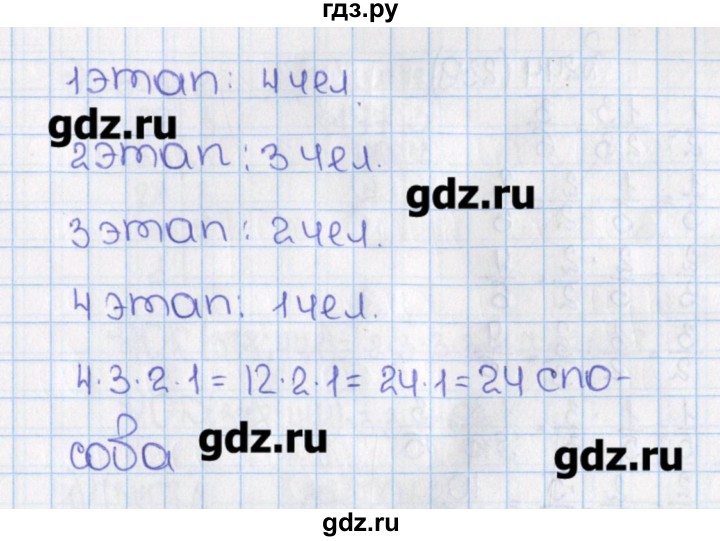 гдз.ру
1 этап: 4 чел.
gdz.ru
2 этап: 3 чел.
gdz.ru
3 этап: 2 чел.
4 этап: 1 чел.
4·3·2·1 = 12·2·1 = 24·1 = 24 спо-
соба
gdz.ru
gdz.ru
gdz.ru